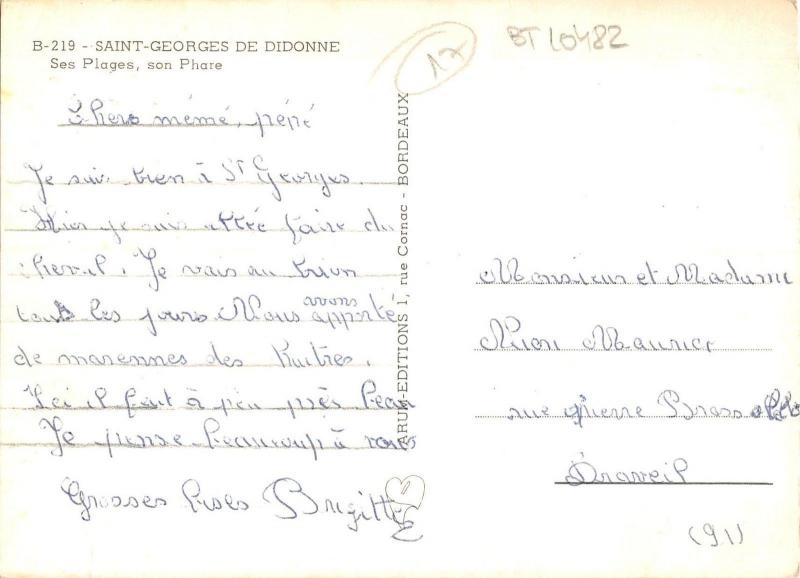 B-219 - SAINT-GEORGES DE DIDONNE
Ses Plages, son Phare
17
BT 10482
Chers mémé, pépé
Je suis bien à St Georges.
Hier je suis allé faire du
cheval. Je vais au
tous les jours Nous avons apporté
de marennes des huitres.
Ici il fait à peu près beau
Je pense beaucoup à vous
Grosses bises Brigitte
ARUM-EDITIONS 1, rue Cornac - BORDEAUX
Monsieur et Madame
Maurice
rue Pierre
Draveil
(91)